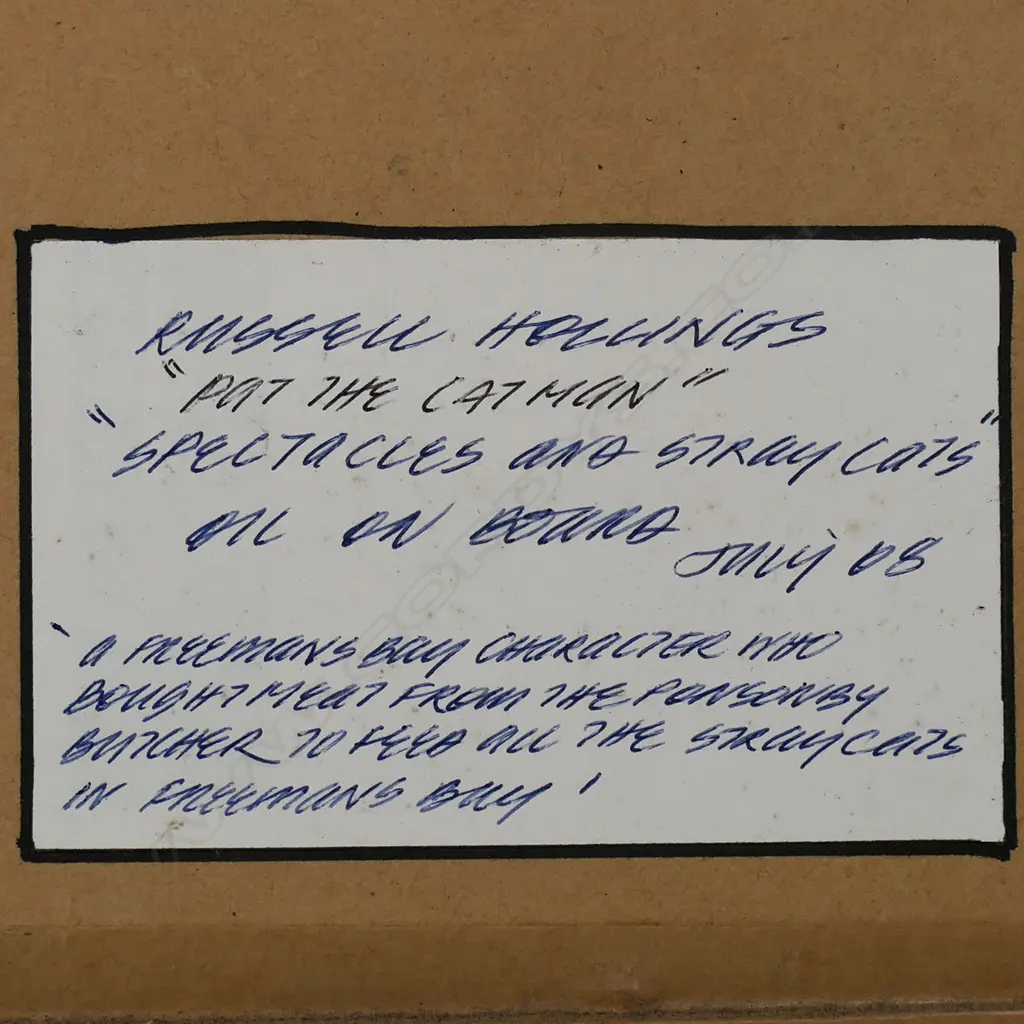 RUSSELL HOLLINGS
"PAT THE CATMAN"
"SPECTACLES AND STRAY CATS"
OIL ON BOARD
JULY 08
'A FREEMANS BAY CHARACTER WHO
BOUGHT MEAT FROM THE PONSONBY
BUTCHER TO FEED ALL THE STRAY CATS
IN FREEMANS BAY'